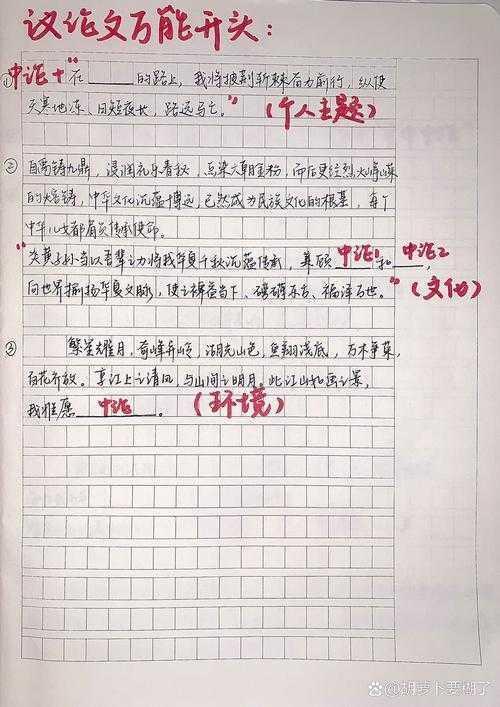 议论文万能开头：
① 中论 + "在______的路上，我将披荆斩棘奋力前行，纵使
天寒地冻、日短夜长，路远马亡。"（个人主题）
② 自禹铸九鼎，浸润礼乐春秋，点染六朝金粉，而后更经烈火峥嵘
的熔铸，中华文化沉蕴博远，已然成为民族文化的根基，每个
中华儿女都肩负传承使命。
"炎黄子孙当以吾辈之力将我华夏千秋沉蕴传承，兼顾 中论1 和 中论2，
向世界 华夏文脉，使之裨益当下、磅礴亦古、福泽百世。"（文化）
③ 繁星耀月，奇峰异岭，湖光山色，鱼翔浅底，万木争荣，
百花齐放。享江上之清风，与山间之明月。此江山如画之景，
我惟愿 中论 。（环境）
胡萝卜要糊了